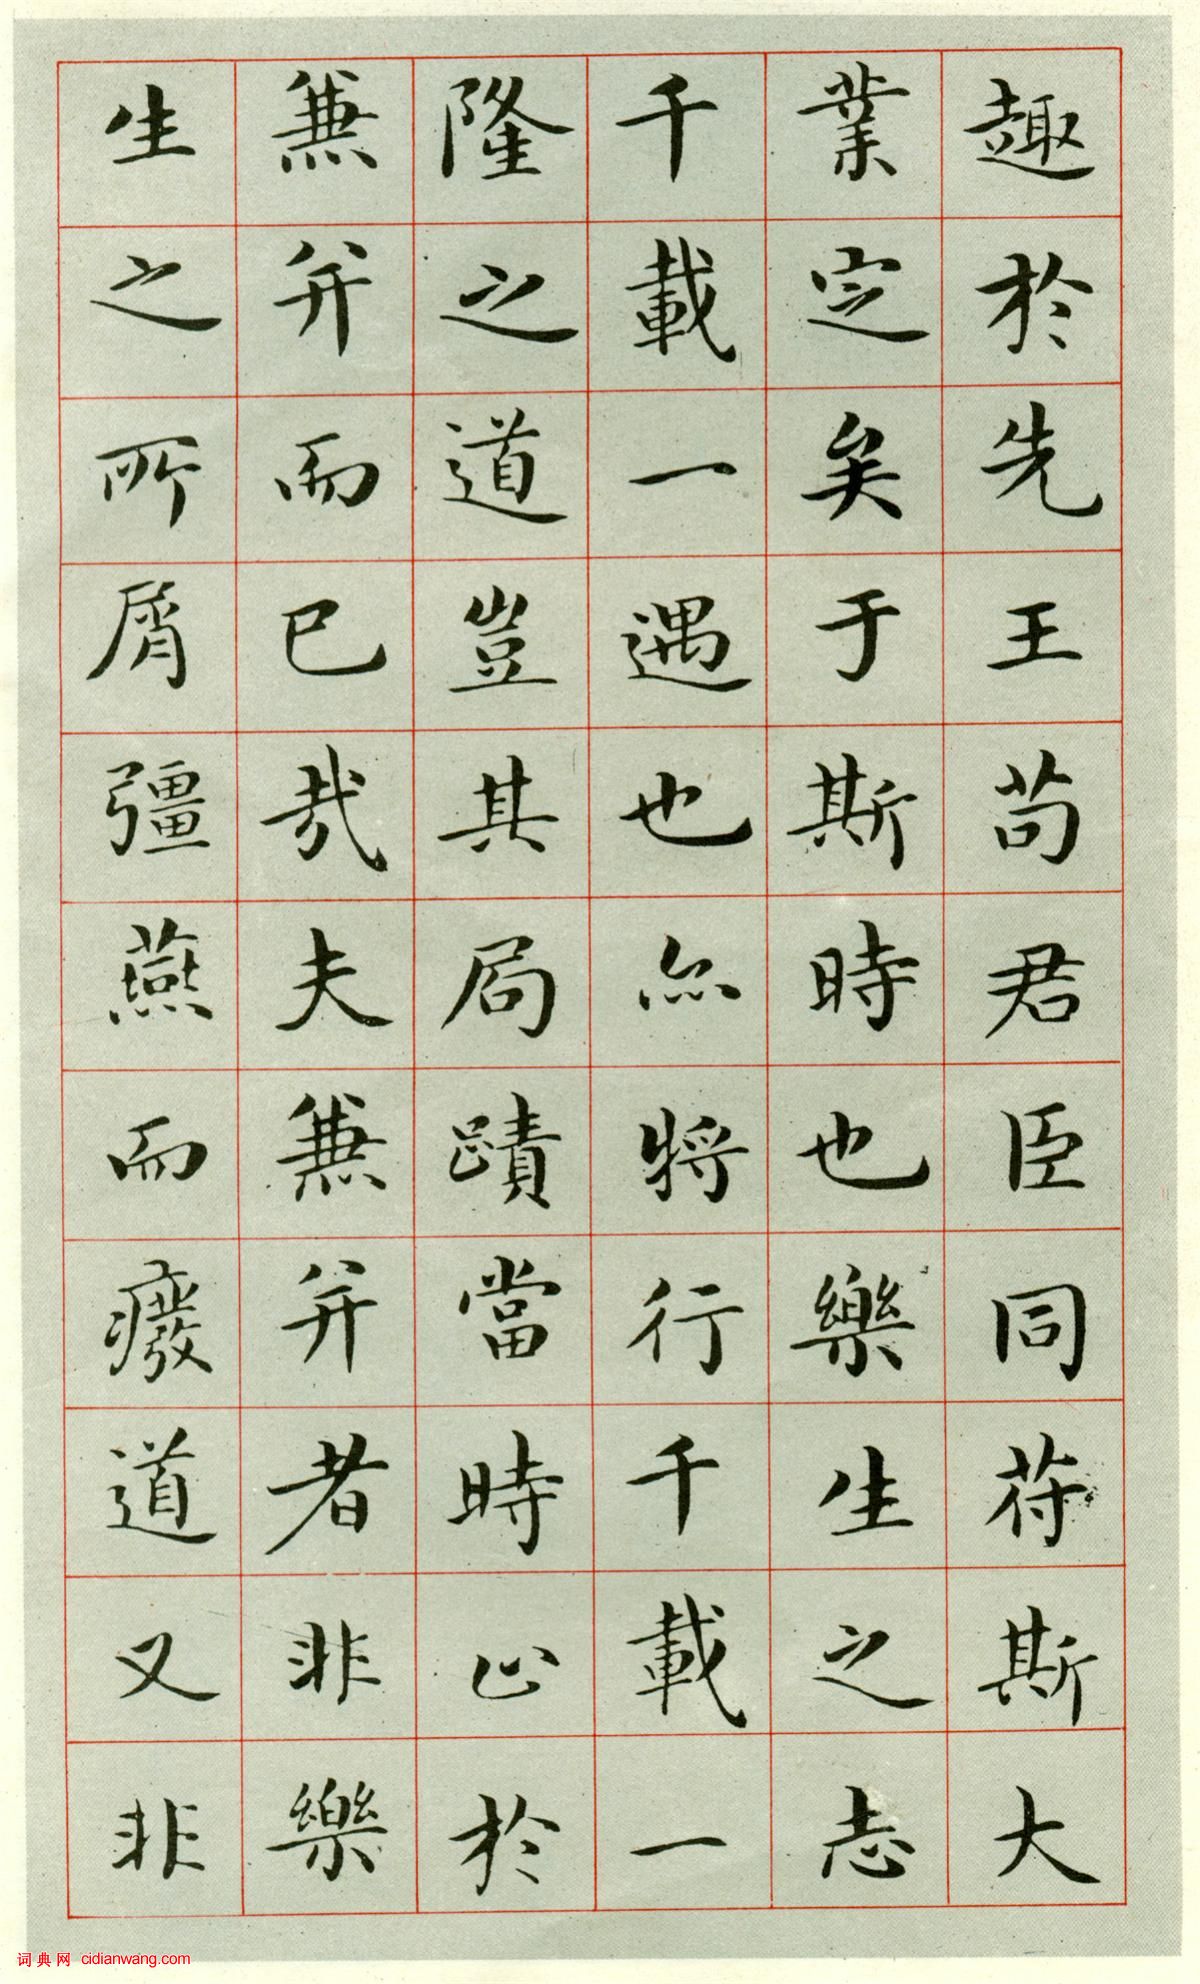 趣於先王苟君臣同苻斯大
業定矣于斯時也樂生之志
千載一遇也亦將行千載一
隆之道豈其局蹟當時止於
兼并而已哉夫兼并者非樂
生之所屑彊燕而癈道又非
词典网 cidianwang.com